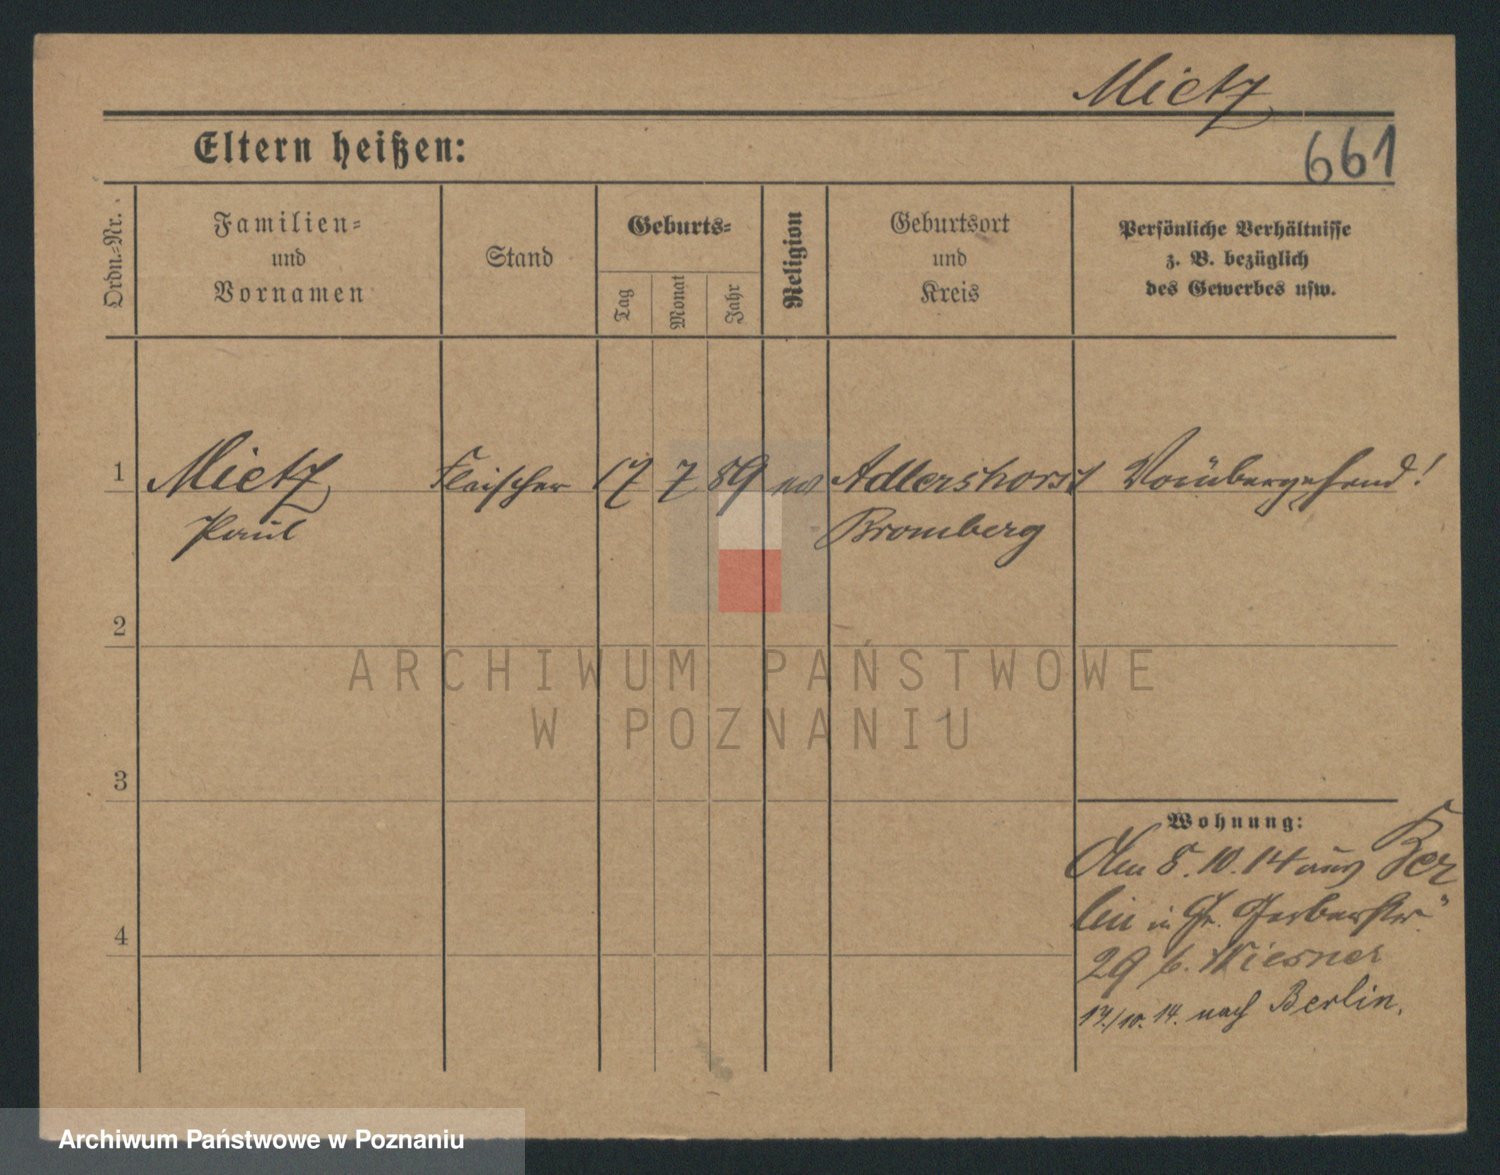 Mietz
661
Eltern heißen:
Ordn.-Nr.
Familien-
und
Vornamen
Stand
Geburts-
Tag
Monat
Jahr
Religion
Geburtsort
und
Kreis
Persönliche Verhältnisse
z. B. bezüglich
des Gewerbes usw.
1 Mietz Fleischer 17 7 89 ev Adlershorst Vorübergehend!
Paul Bromberg
2
ARCHIWUM PAŃSTWOWE
W POZNANIU
3
Wohnung:
Am 8.10.14 aus Ber
lin in Gr. Gerberstr
4
29 b. Wiesner
17./10. 14. nach Berlin.
Archiwum Państwowe w Poznaniu